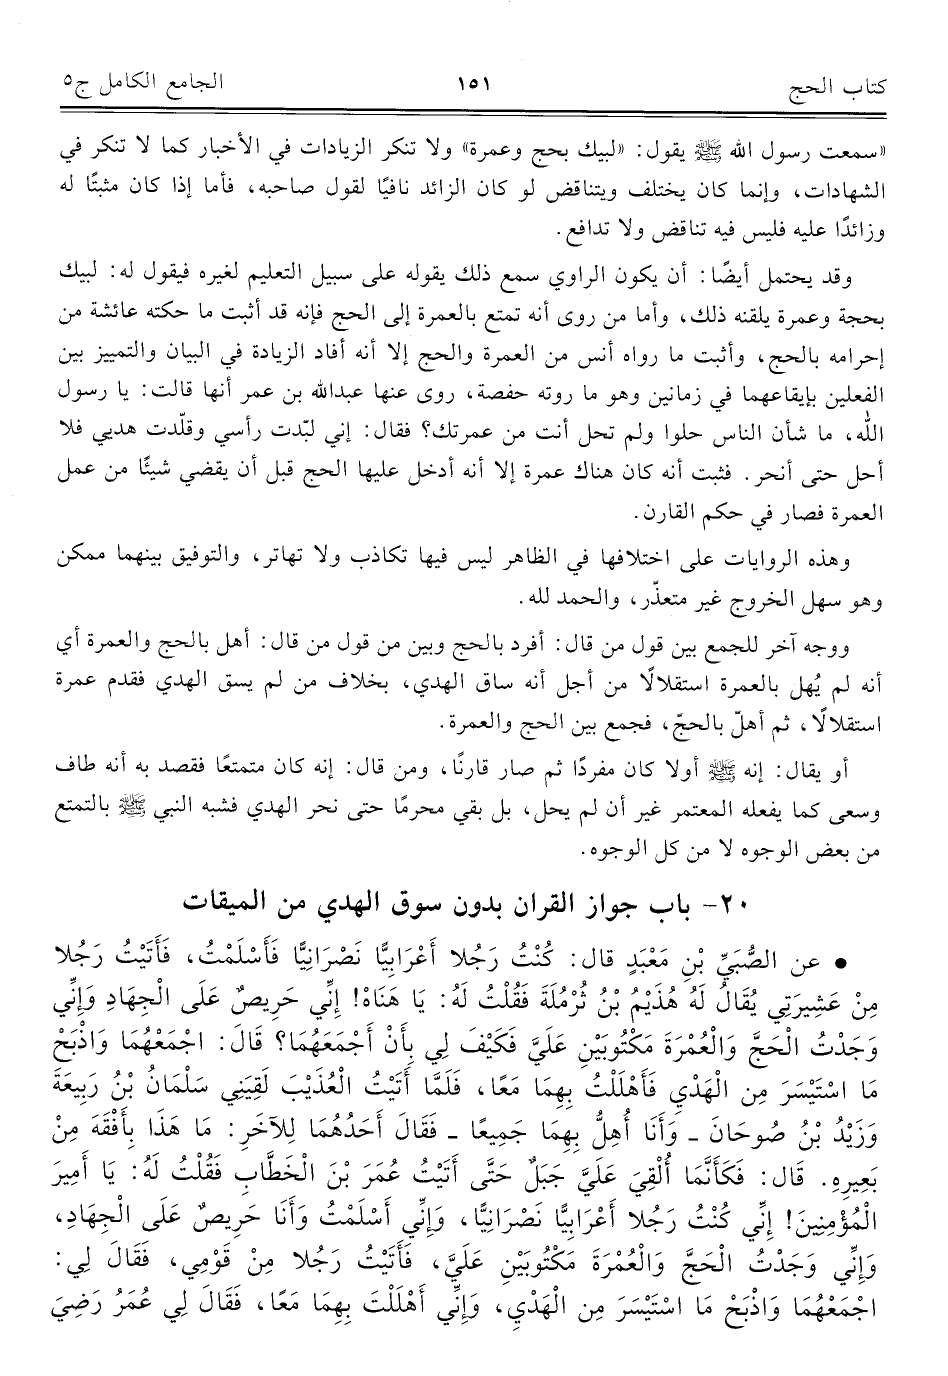 كتاب الحج ١٥١ الجامع الكامل ج٥
«سمعت رسول الله ﷺ يقول: «لبيك بحج وعمرة» ولا تنكر الزيادات في الأخبار كما لا تنكر في
الشهادات، وإنما كان يختلف ويتناقض لو كان الزائد نافيًا لقول صاحبه، فأما إذا كان مثبتًا له
وزائدًا عليه فليس فيه تناقض ولا تدافع.
وقد يحتمل أيضًا: أن يكون الراوي سمع ذلك يقوله على سبيل التعليم لغيره فيقول له: لبيك
بحجة وعمرة يلقنه ذلك، وأما من روى أنه تمتع بالعمرة إلى الحج فإنه قد أثبت ما حكته عائشة من
إحرامه بالحج، وأثبت ما رواه أنس من العمرة والحج إلا أنه أفاد الزيادة في البيان والتمييز بين
الفعلين بإيقاعهما في زمانين وهو ما روته حفصة، روى عنها عبدالله بن عمر أنها قالت: يا رسول
الله، ما شأن الناس حلوا ولم تحل أنت من عمرتك؟ فقال: إني لبّدت رأسي وقلّدت هديي فلا
أحل حتى أنحر. فثبت أنه كان هناك عمرة إلا أنه أدخل عليها الحج قبل أن يقضي شيئًا من عمل
العمرة فصار في حكم القارن.
وهذه الروايات على اختلافها في الظاهر ليس فيها تكاذب ولا تهاتر، والتوفيق بينهما ممكن
وهو سهل الخروج غير متعذّر، والحمد لله.
ووجه آخر للجمع بين قول من قال: أفرد بالحج وبين من قول من قال: أهل بالحج والعمرة أي
أنه لم يُهل بالعمرة استقلالًا من أجل أنه ساق الهدي، بخلاف من لم يسق الهدي فقدم عمرة
استقلالًا، ثم أهلّ بالحجّ، فجمع بين الحج والعمرة.
أو يقال: إنه ﷺ أولا كان مفردًا ثم صار قارنًا، ومن قال: إنه كان متمتعًا فقصد به أنه طاف
وسعى كما يفعله المعتمر غير أن لم يحل، بل بقي محرمًا حتى نحر الهدي فشبه النبي ﷺ بالتمتع
من بعض الوجوه لا من كل الوجوه.
٢٠- باب جواز القران بدون سوق الهدي من الميقات
• عن الصُّبَيِّ بْنِ مَعْبَدٍ قال: كُنْتُ رَجُلا أَعْرَابِيًّا نَصْرَانِيًّا فَأَسْلَمْتُ، فَأَتَيْتُ رَجُلا
مِنْ عَشِيرَتِي يُقَالُ لَهُ هُذَيْمُ بْنُ ثُرْمُلَةَ فَقُلْتُ لَهُ: يَا هَنَاهْ! إِنِّي حَرِيصٌ عَلَى الْجِهَادِ وَإِنِّي
وَجَدْتُ الْحَجَّ وَالْعُمْرَةَ مَكْتُوبَيْنِ عَلَيَّ فَكَيْفَ لِي بِأَنْ أَجْمَعَهُمَا؟ قَالَ: اجْمَعْهُمَا وَاذْبَحْ
مَا اسْتَيْسَرَ مِنَ الْهَدْيِ فَأَهْلَلْتُ بِهِمَا مَعًا، فَلَمَّا أَتَيْتُ الْعُذَيْبَ لَقِيَنِي سَلْمَانُ بْنُ رَبِيعَةَ
وَزَيْدُ بْنُ صُوحَانَ ـ وَأَنَا أُهِلُّ بِهِمَا جَمِيعًا ـ فَقَالَ أَحَدُهُمَا لِلآخَرِ: مَا هَذَا بِأَفْقَهَ مِنْ
بَعِيرِهِ. قَالَ: فَكَأَنَّمَا أُلْقِيَ عَلَيَّ جَبَلٌ حَتَّى أَتَيْتُ عُمَرَ بْنَ الْخَطَّابِ فَقُلْتُ لَهُ: يَا أَمِيرَ
الْمُؤْمِنِينَ! إِنِّي كُنْتُ رَجُلا أَعْرَابِيًّا نَصْرَانِيًّا، وَإِنِّي أَسْلَمْتُ وَأَنَا حَرِيصٌ عَلَى الْجِهَادِ،
وَإِنِّي وَجَدْتُ الْحَجَّ وَالْعُمْرَةَ مَكْتُوبَيْنِ عَلَيَّ، فَأَتَيْتُ رَجُلا مِنْ قَوْمِي، فَقَالَ لِي:
اجْمَعْهُمَا وَاذْبَحْ مَا اسْتَيْسَرَ مِنَ الْهَدْيِ، وَإِنِّي أَهْلَلْتُ بِهِمَا مَعًا، فَقَالَ لِي عُمَرُ رَضِيَ